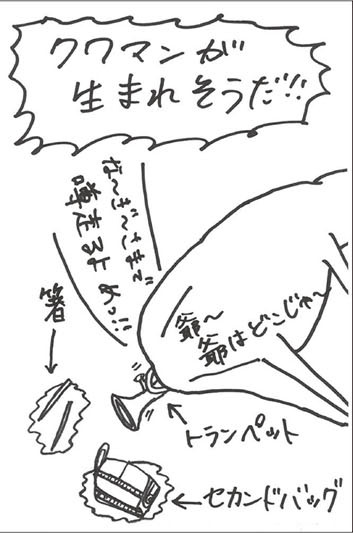 クワマンが
生まれそうだ!!
な〜ぎ〜さまで
噂走るよ めっ!!
爺〜
爺はどこじゃ〜
箸
トランペット
セカンドバッグ